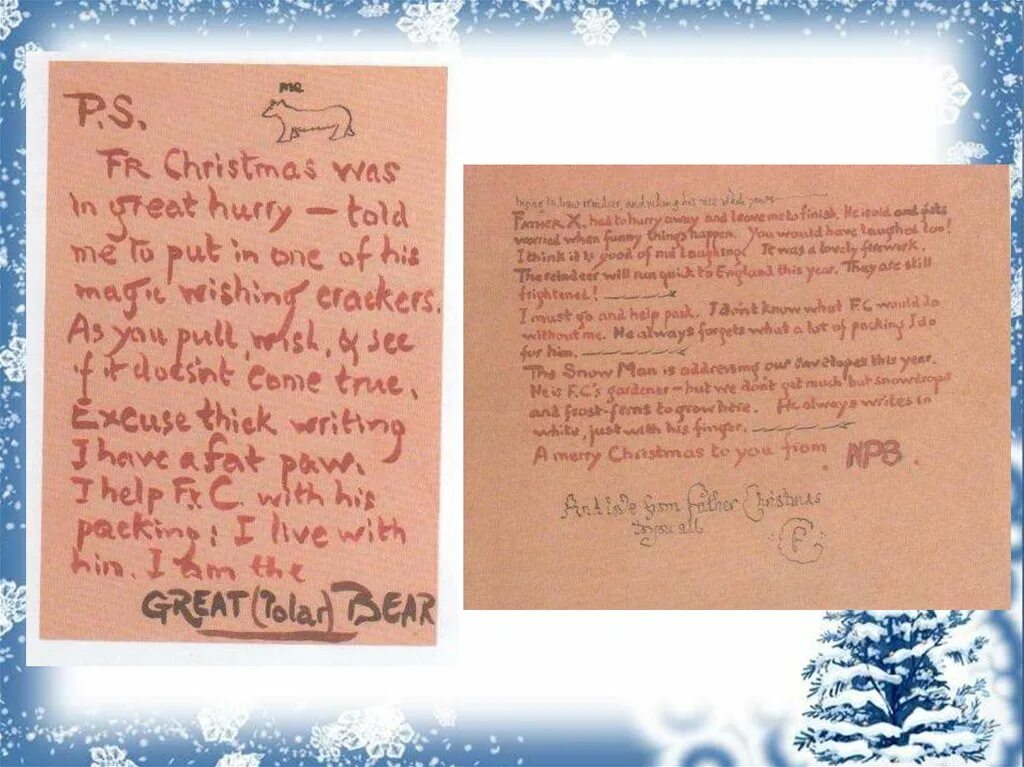 me
P.S.
Fr Christmas was
in great hurry — told
me to put in one of his
magic wishing crackers.
As you pull, wish, & see
if it doesn't come true.
Excuse thick writing
I have a fat paw.
I help Fr. C. with his
packing: I live with
him. I am the
GREAT (Polar) BEAR
and
Father X. had to hurry away and leave me to finish. He is old and gets
worried when funny things happen. You would have laughed too!
I think it is good of me laughing. It was a lovely firework.
The reindeer will run quick to England this year. They are still
frightened!
I must go and help pack. I don't know what F.C would do
without me. He always forgets what a lot of packing I do
for him.
The Snow Man is addressing our envelopes this year.
He is F.C's gardener — but we don't get much but snowdrops
and frost-ferns to grow here. He always writes in
white, just with his finger.
A merry Christmas to you from NPB.
And love from Father Christmas
to you all
F